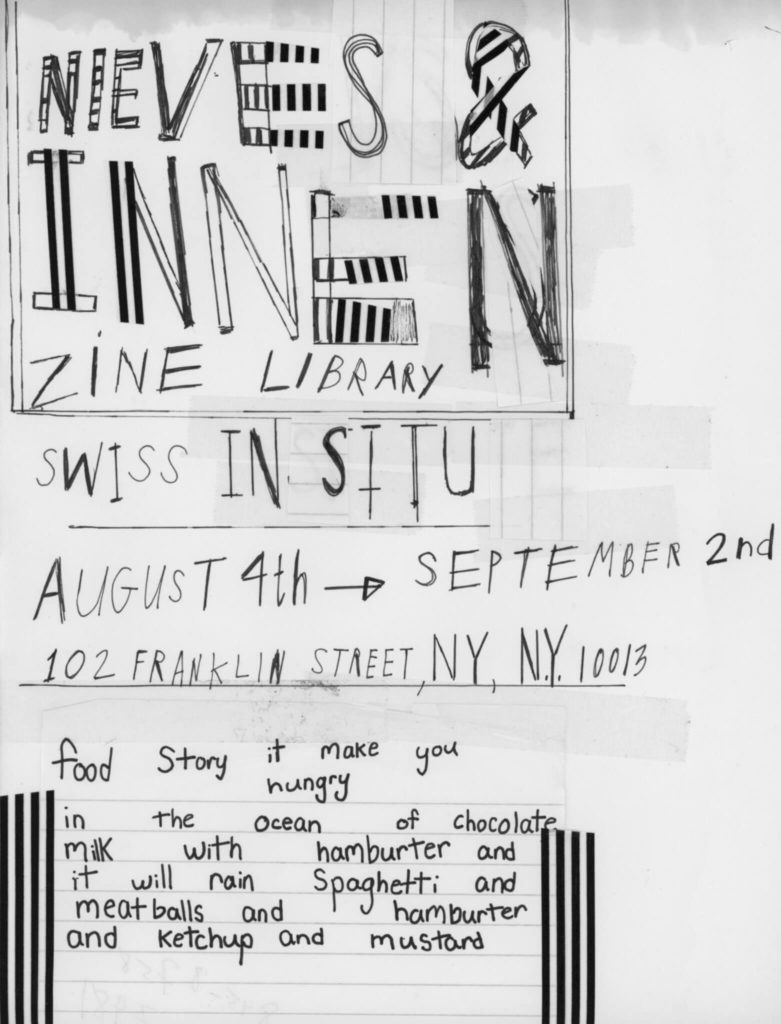 NIEVES &
INNEN
ZiNE LIBRARY
SWISS IN SITU
AUGUST 4th → SEPTEMBER 2nd
102 FRANKLIN STREET, NY, N.Y. 10013
food Story it make you
hungry
in the ocean of chocolate
milk with hamburter and
it will rain Spaghetti and
meatballs and hamburter
and ketchup and mustard